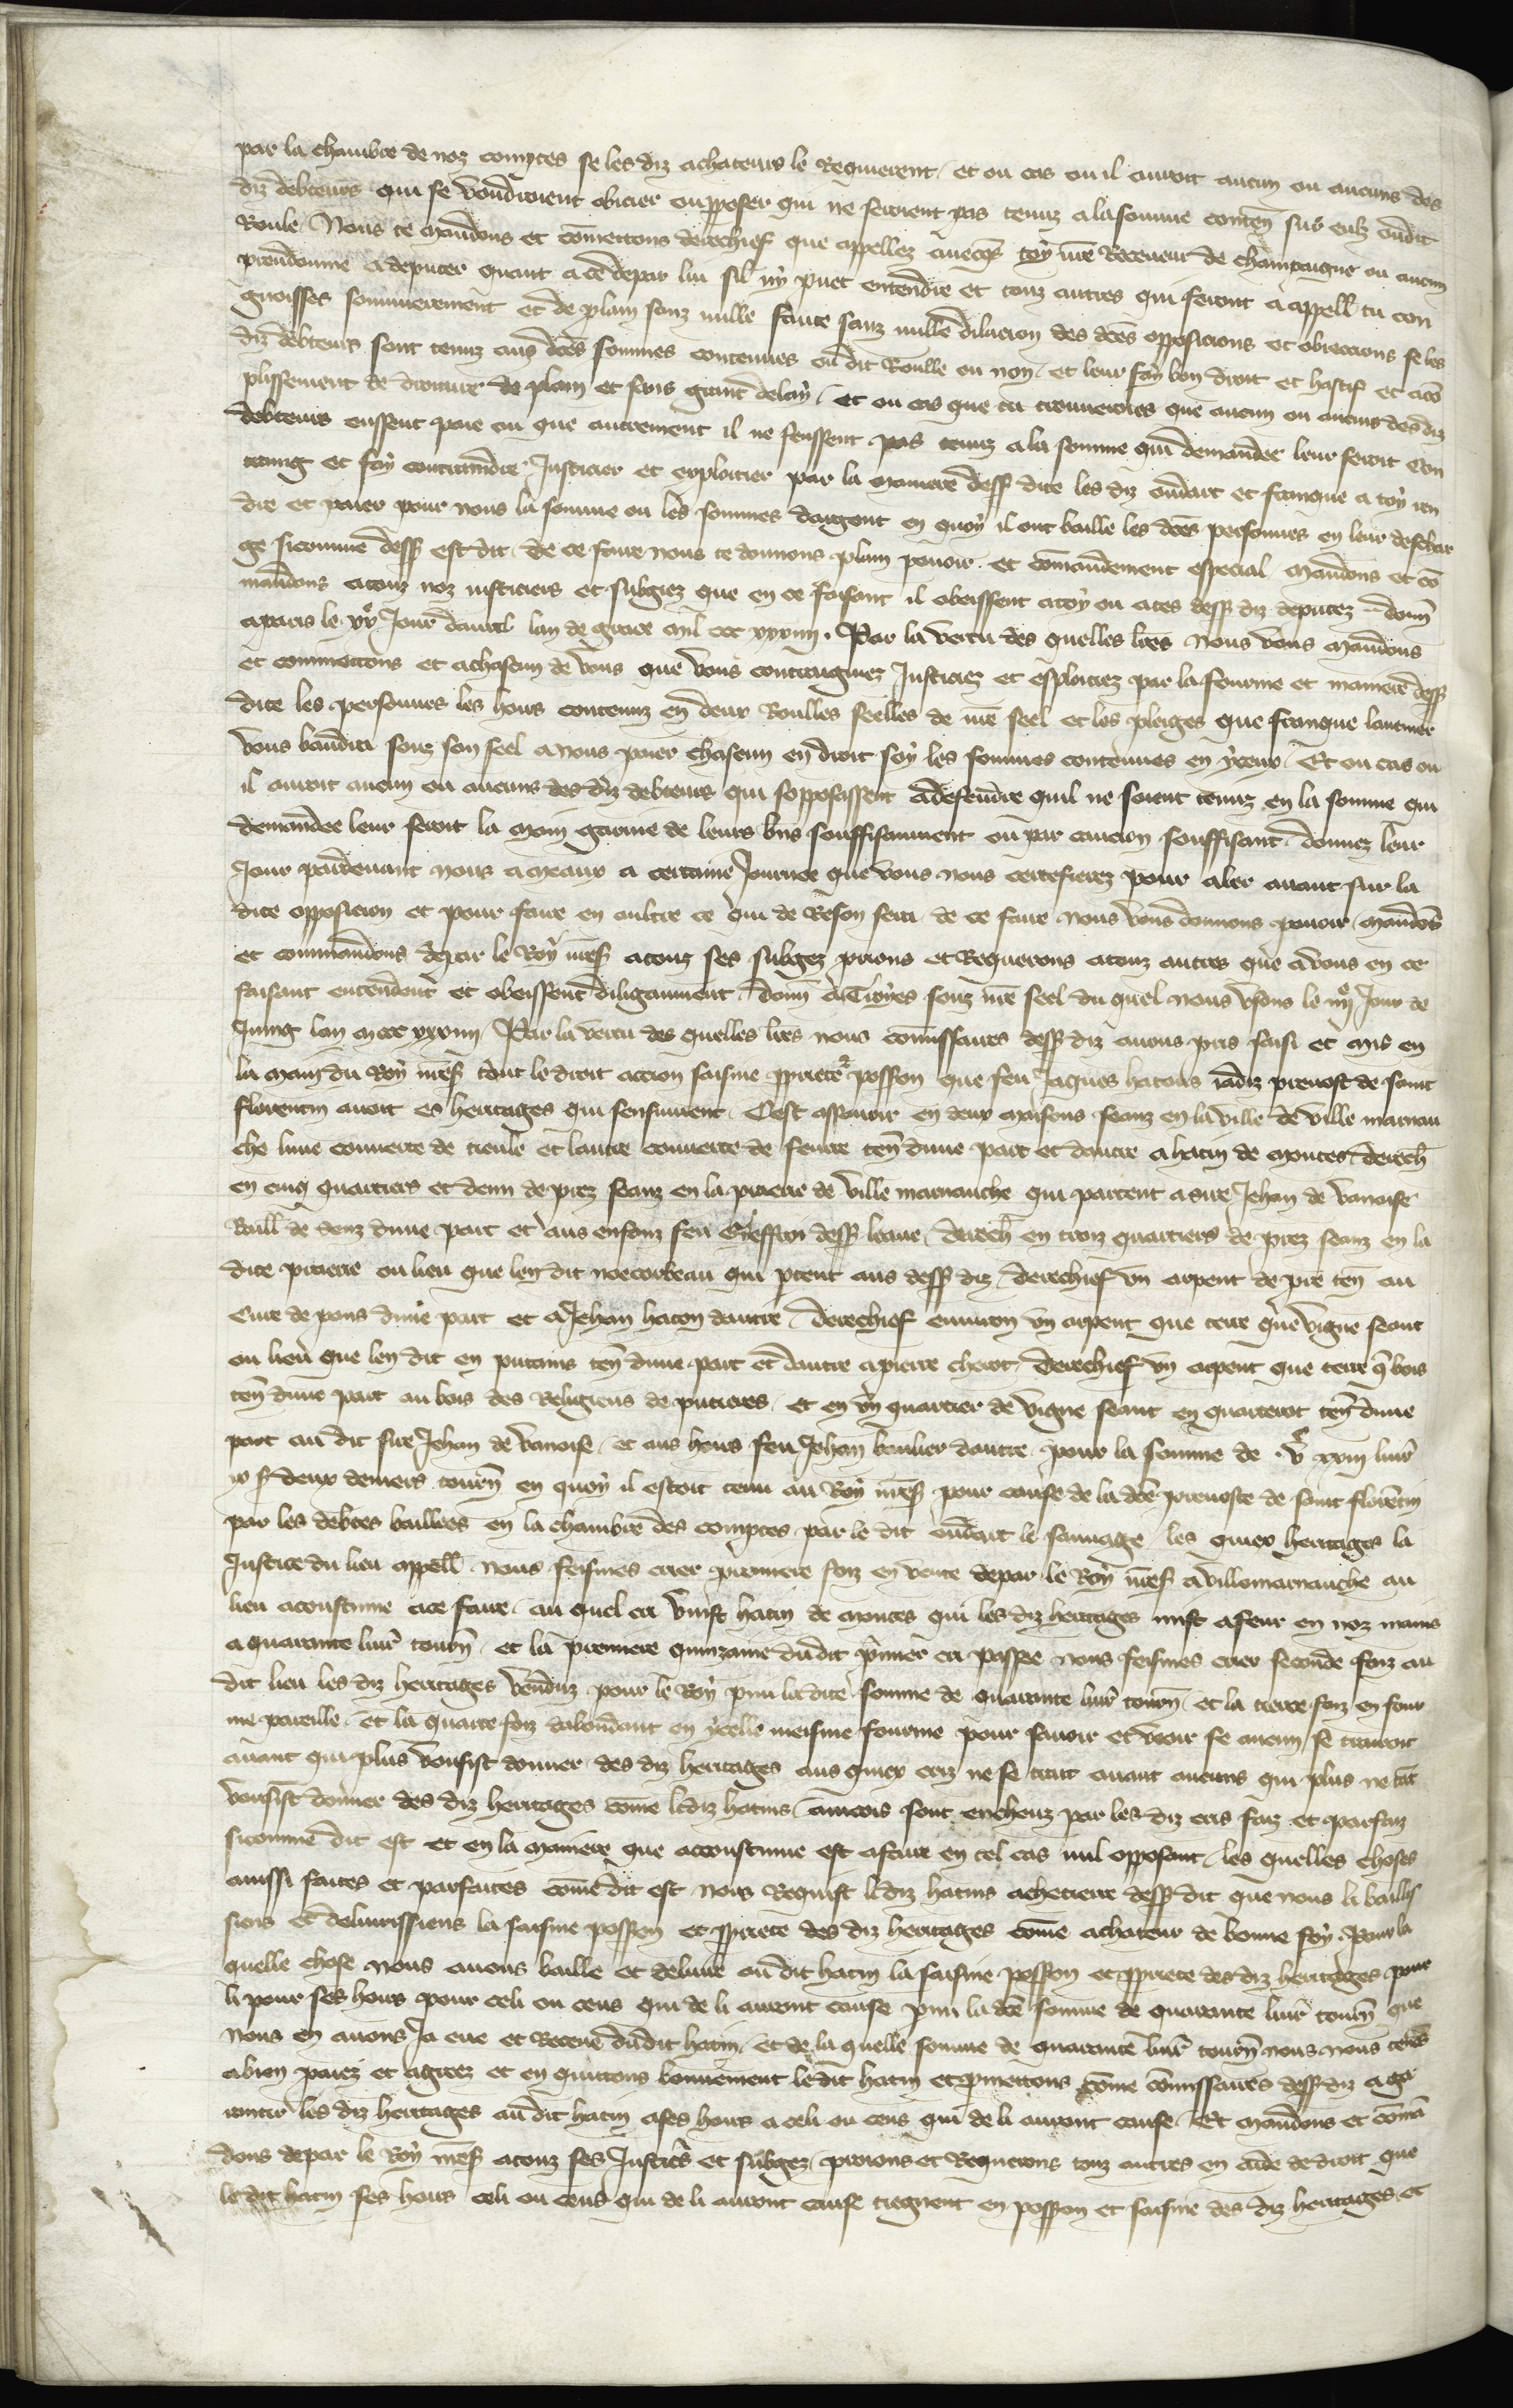 par la chambre de noz comptes se les diz achateurs le Requierent / et ou cas ou il auroit aucun ou aucuns des
diz debteurs qui se voudroient obicier ou opposer qui ne seroient pas tenuz a la somme conten̄ sus eulz ou dit
Roule / Nous te mandons et cōmettons derechief que appellez auecq̄s toy nr̄e Receueur de Champaigne ou aucun
preudomme a deputer quant a ce de par lui sil ny puet entendre et touz autres qui seront a appell̄ tu con
gnoisses sommierement et de plain sanz nulle faute sanz nulle dilacion des dc̄es opposicions et obieccions se les
diz debteurs sont tenuz aus dc̄es sommes contenues ou dit Roulle ou non / et leur fay bon droit et hastif et acō
plissement de droiture de plain et sans grant delay / et ou cas que tu trouueroies que aucun ou aucuns des diz
debteurs eussent paie ou que autrement il ne feussent pas tenuz a la somme qui demandee leur seroit Con
traing et fay contraindre Justicier et exploitier par la maniere dess̄ dite les diz oudart et franque a toy ren
dre et paier pour nous la somme ou les sommes dargent en quoy il ont baille les dc̄es personnes en leur deschar
ge sicomme dess̄ est dit / de ce faire nous te donnons plain pouoir et cōmandement especial mandons et cō
mandons a touz noz iusticiers et subgiez que en ce faisant il obeissent a toy ou a tes dess̄ diz deputez donn̄
a paris le xxe Jour dauril lan de grace mil ccc xxxiiij. Par la vertu des quelles lr̄es nous vous mandons
et commettons et a chascun de vous que vous contraigniez Justiciez et exploitiez par la fourme et maniere dess̄
dite les personnes les hoirs contenuz en deux Roulles seelles de nr̄e seel et les pleiges que franque lauemer
vous baudra souz son seel a nous paier chascun en droit soy les sommes contenues en yceux / Et ou cas ou
il auroit aucun ou aucuns des diz debteurs qui sopposassent a defendre quil ne soient tenuz en la somme qui
demandee leur seroit la main garnie de leurs bn̄s souffisamment ou par caucion souffisant donnez leur
Jour par deuant nous a meaux a certaine Journee que vous nous certefierez pour aler auant sur la
dite opposicion et pour faire en oultre ce qui de Reson sera / de ce faire nous vous donnons pouoir / mandōs
et commandons de par le Roy nr̄es̄ a touz ses subgez prions et Requerons a touz autres que a vous en ce
faisant entendent et obeissent diligaument / donn̄ a Troyes souz nr̄e seel du quel nous vsons le iiije Jour de
Juing lan m ccc xxxiiij / Par la vertu des quelles lr̄es nous cōmissaires dess̄ diz auons pris saisi et mis en
la main du Roy nr̄es̄ tout le droit accion saisine ꝓpriete ⁊ posson̄ que feu Jaques hatons iadiz preuost de saint
florentin auoit es heritages qui sensuiuent / Cest assauoir en deux maisons seanz en la ville de ville marnau
che lune couuerte de tieule et lautre couuerte de feurre ten̄ dune part et dautre a hatin de montes derech̄
en cinq quartiers et demi de prez seanz en la praerie de ville marnauche qui partent a sire Jehan de vanoise
Baill̄ de senz dune part et aus enfanz feu dess̄ leaue / derech̄ en troiz quartiers de prez seanz en la
dite praerie ou lieu que len dit noecorbeau qui ꝑtent aus dess̄ diz / derechief vn arpent de pre ten̄ au
Cure de pons dune part et a Jehan hacon dautre / derechief enuiron vn arpent que terre que vigne seant
ou lieu que len dit en putains ten̄ dune part et dautre a pierre cheror derechief vn arpent que terre q̄ bois
ten̄ dune part au bois des Religieus de putieres / et en vn quartier de vigne seant en quarteror ten̄ dune
part au dit sire Jehan de vanoise / et aus hoirs feu Jehan boulier dautre / pour la somme de vc xxiij liur̄
ix s̄ deux deniers tourn̄ en quoy il estoit tenu au Roy nr̄es̄ pour cause de la dc̄e preuoste de saint florētin
par les debtes baillees en la chambre des comptes par le dit oudart le sauuage / les quiex heritages la
Justice du lieu appell̄ nous feismes crier premiere foiz en vente de par le Roy nr̄es̄ a villemarnauche au
lieu acoustume a ce faire / au quel cri vinst hatin de montes qui les diz heritages mist a feur en noz mains
a quarante liur̄ tourn̄ / et la premiere quinzaine du dit p̄mier cri passee nous feismes crier seconde foiz au
dit lieu les diz heritages venduz pour le Roy pm̄i la dite somme de quarante liur̄ tourn̄ / et la tierce foiz en four
me pareille et la quarte foiz dabondant en ycelle meisme fourme pour sauoir et veoir se aucun se trairoit
auant qui plus vousist donner des diz heritages aus quiex criz ne se trait auant aucuns qui plus ne tāt
vousist donner des diz heritages cōme ledit hatins / aincois sont encheuz par les diz cris faiz et parfaiz
sicomme dit est et en la maniere que accoustume est a faire en tel cas nul opposant / les quelles choses
ainssi faites et parfaites cōme dit est nous Requist ledit hatins achetierre dess̄ dit que nous li baillis
siens et deliurissiens la saisine posson̄ et ꝓpriete des diz heritages cōme achateur de bonne foy / Pour la
quelle chose nous auons baille et deliure au dit hatin la saisine posson̄ et ꝓpriete des diz heritages pour
li pour ses hoirs pour celi ou ceus qui de li auront cause pm̄i la dc̄e somme de quarante liur̄ tourn̄ que
nous en auons Ja eue et Receue du dit hatin / et de la quelle somme de quarante liur̄ tourn̄ nous nous tenōs
a bien paiez et agreez et en quittons bonnement le dit hatin et ꝓmettons cōme cōmissaires dess̄ diz a ga
rantir les diz heritages au dit hatin a ses hoirs a celi ou ceus qui de li auront cause / Et mandons et cōmā
dons de par le Roy nr̄es̄ a touz ses Justic̄s et subgez / prions et Requerons touz autres en aide de droit que
le dit hatin ses hoirs celi ou ceus qui de li auront cause tiegnent en posson̄ et saisine des diz heritages et